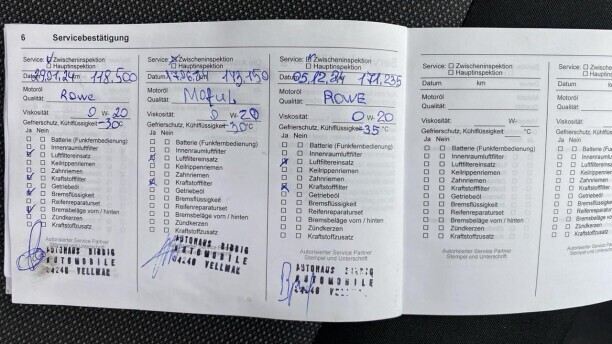 6 Servicebestätigung
Service: Zwischeninspektion
Hauptinspektion
Datum 29.01.24 km 118.500
Motoröl
Qualität: ROWE
Viskosität: 0 W- 20
Gefrierschutz, Kühlflüssigkeit -30°C
Ja Nein
Batterie (Funkfernbedienung)
Innenraumluftfilter
Luftfiltereinsatz
Keilrippenriemen
Zahnriemen
Kraftstofffilter
Getriebeöl
Bremsflüssigkeit
Reifenreparaturset
Bremsbeläge vorn / hinten
Zündkerzen
Kraftstoffzusatz
Autorisierter Service Partner
AUTOHAUS
AUTOMOBILE
34246 VELLMAR
Service: Zwischeninspektion
Hauptinspektion
Datum 17.06.24 143.150
Motoröl
Qualität: Motul
Viskosität: 0 W- 20
Gefrierschutz, Kühlflüssigkeit -30°C
Ja Nein
Batterie (Funkfernbedienung)
Innenraumluftfilter
Luftfiltereinsatz
Keilrippenriemen
Zahnriemen
Kraftstofffilter
Getriebeöl
Bremsflüssigkeit
Reifenreparaturset
Bremsbeläge vorn / hinten
Zündkerzen
Kraftstoffzusatz
AUTOHAUS
AUTOMOBILE
34246 VELLMAR
Service: Zwischeninspektion
Hauptinspektion
Datum 05.12.24 171.235
Motoröl
Qualität: ROWE
Viskosität: 0 W- 20
Gefrierschutz, Kühlflüssigkeit -35°C
Ja Nein
Batterie (Funkfernbedienung)
Innenraumluftfilter
Luftfiltereinsatz
Keilrippenriemen
Zahnriemen
Kraftstofffilter
Getriebeöl
Bremsflüssigkeit
Reifenreparaturset
Bremsbeläge vorn / hinten
Zündkerzen
Kraftstoffzusatz
Autorisierter Service Partner
Stempel und Unterschrift
AUTOHAUS
AUTOMOBILE
Service: Zwischeninspektion
Hauptinspektion
Datum km
Motoröl
Qualität:
Viskosität: W-
Gefrierschutz, Kühlflüssigkeit °C
Ja Nein
Batterie (Funkfernbedienung)
Innenraumluftfilter
Luftfiltereinsatz
Keilrippenriemen
Zahnriemen
Kraftstofffilter
Getriebeöl
Bremsflüssigkeit
Reifenreparaturset
Bremsbeläge vorn / hinten
Zündkerzen
Kraftstoffzusatz
Autorisierter Service Partner
Stempel und Unterschrift